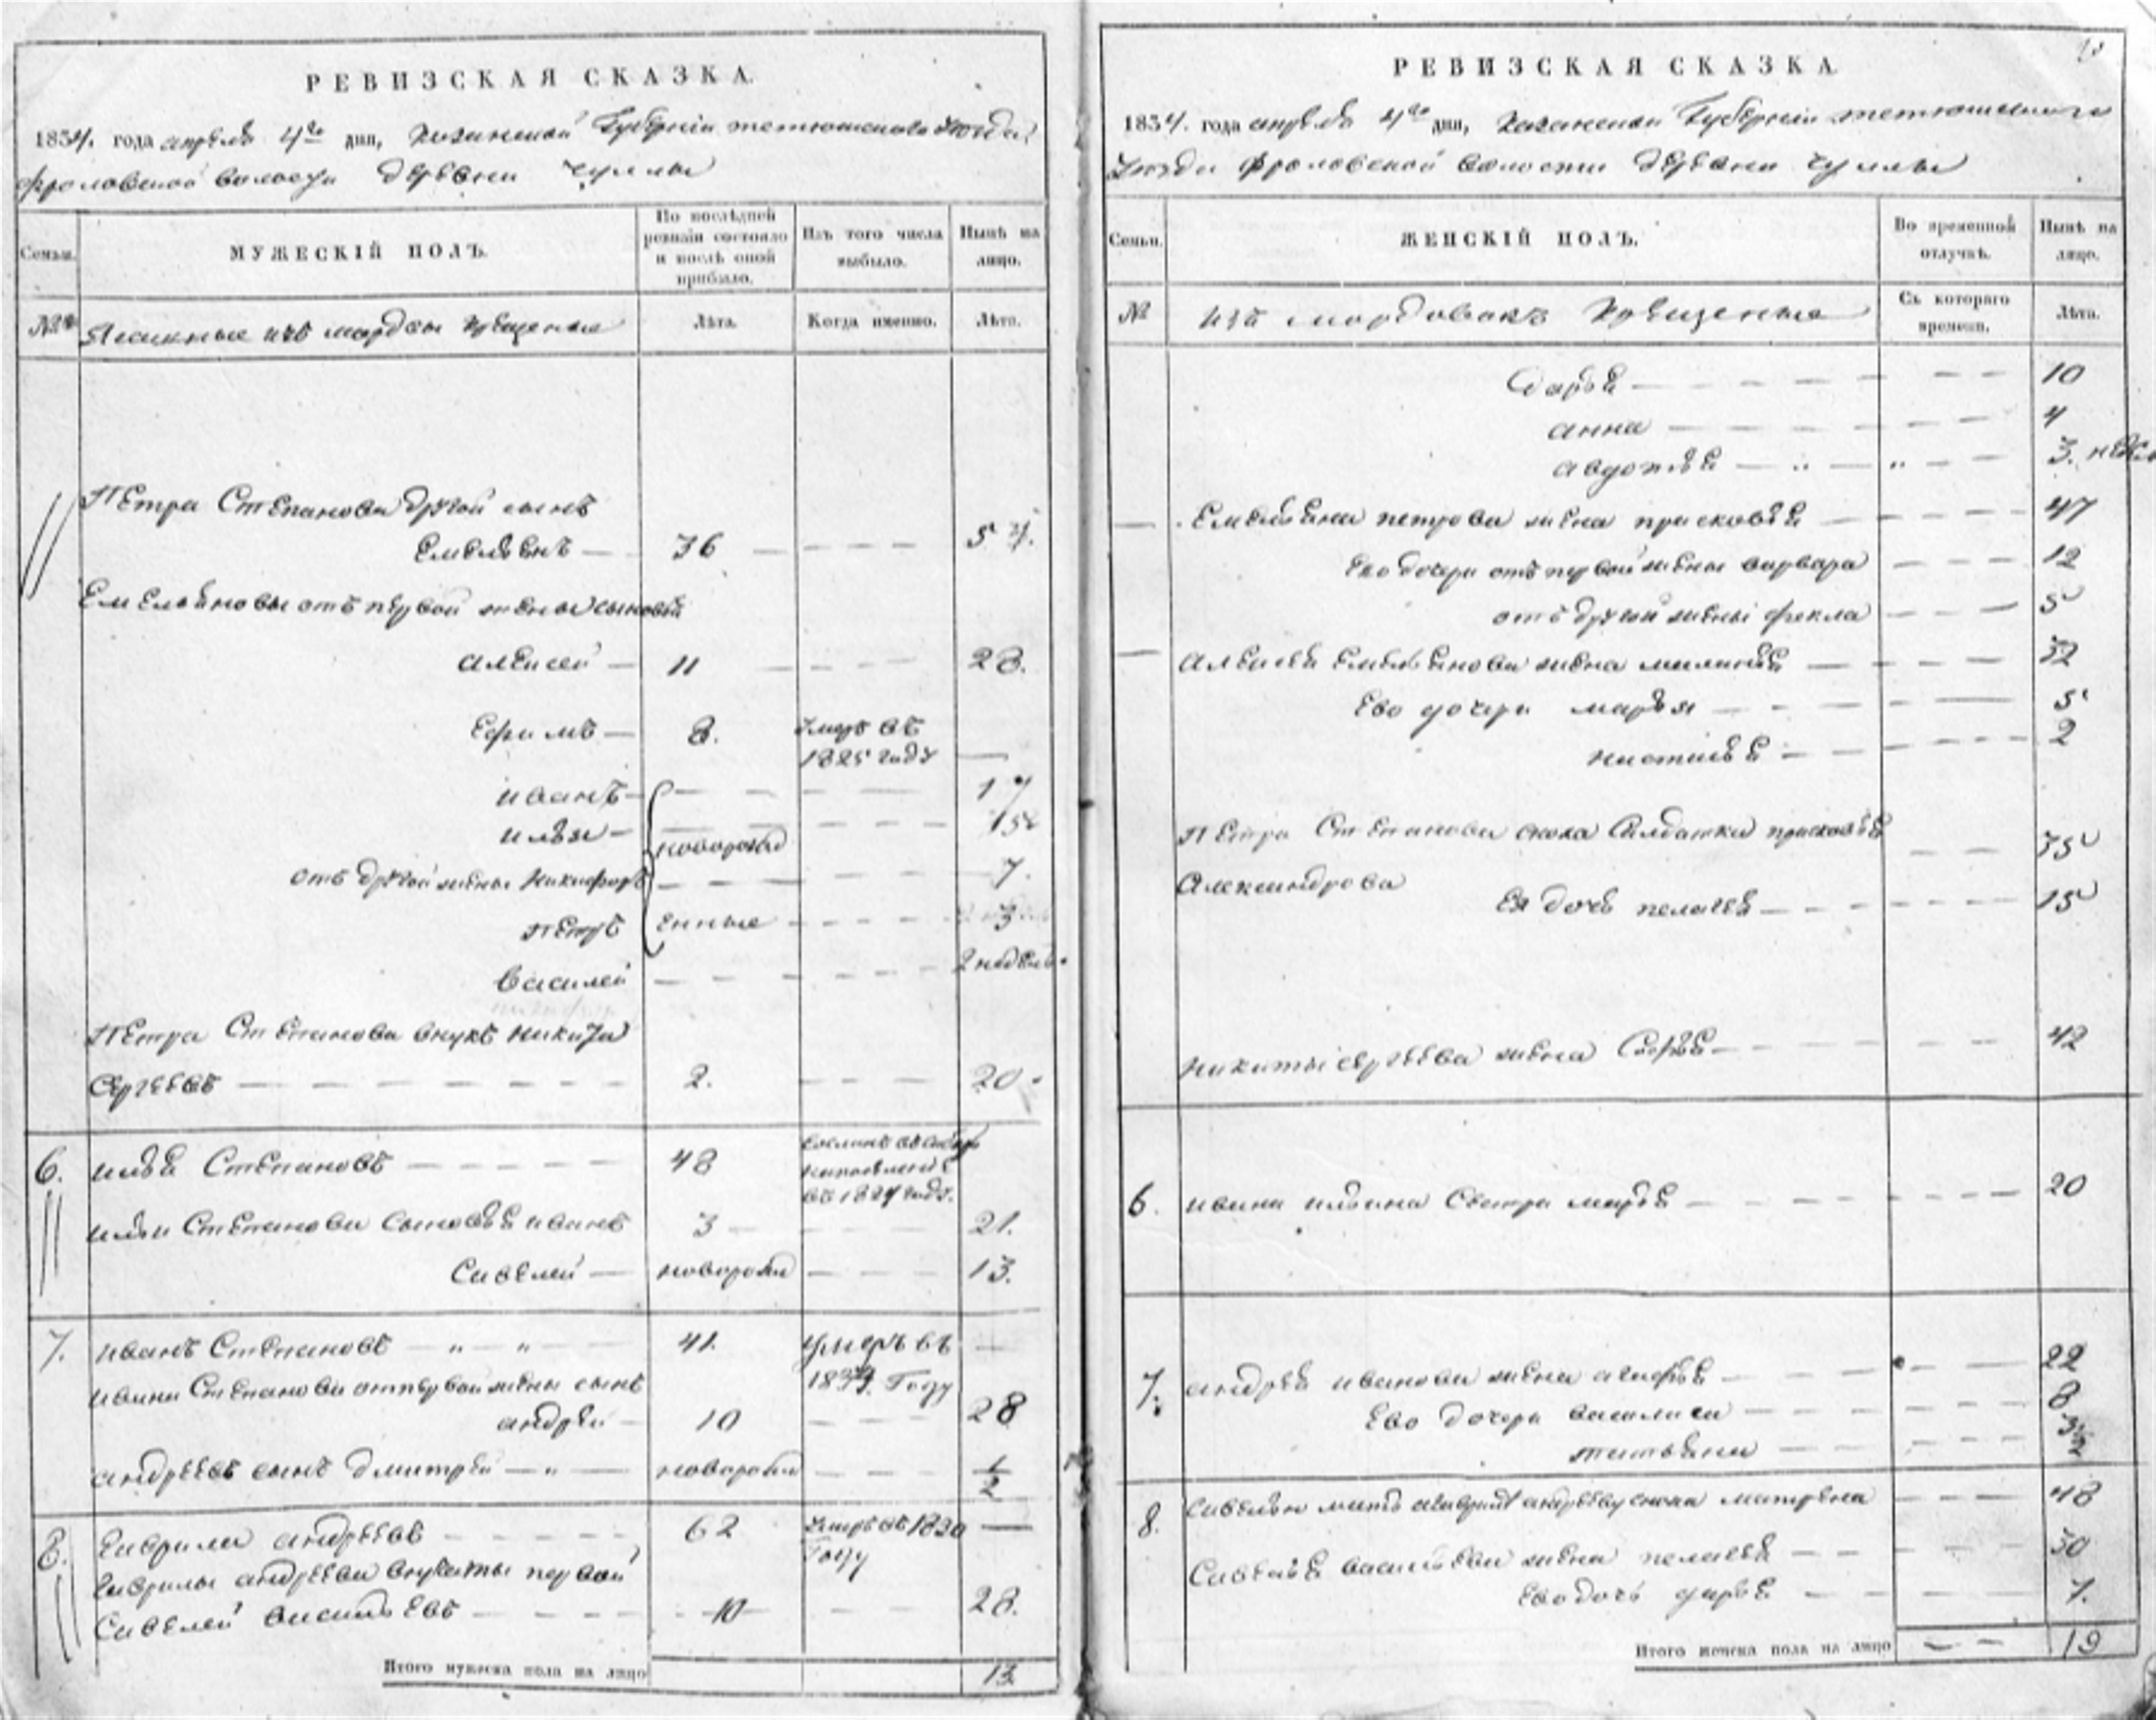 РЕВИЗСКАЯ СКАЗКА.
1834. года апреля 4го дня, Казанской Губернии тетюшскаго Уезда
фроловской волости деревни чуллы
Семьи.
МУЖЕСКІЙ ПОЛЪ.
По послѣдней ревизіи состояло и послѣ оной прибыло.
Изъ того числа выбыло.
Нынѣ на лицо.
№
Ясашные изъ мордвы крещеные
Лѣта.
Когда именно.
Лѣта.
Петра Степанова другой сынъ
Емельянъ — 36 — — — — 54.
Емельяновы отъ первой жены сыновья
Алексей — 11 — — — 28.
Ефимъ — 8. Умеръ въ 1825 году —
иванъ — — — — 17
илья — новорожд — — — 15
отъ другой жены Никифоръ — — — 7.
петръ енные — — — 3
Василей — — — — 2 недели.
Петра Степанова внукъ никита
Сергеевъ — — — — — 2. — — — 20.
6. илья Степановъ — — — — 48
въ 1827 году.
ильи Степанова сыновья иванъ 3 — — — 21.
Савелей — новорожд — — — 13.
7. иванъ Степановъ — „ — „ — 41. умеръ въ —
1834. Году
ивана Степанова отъ первой жены сынъ
андрей — 10 — — — 28
андреевъ сынъ дмитрей — „ — новорожд — — — 1/2
8. Гаврила андреевъ — — — — 62 Умеръ въ 1830 —
Году
Гаврилы андреева внукъ первой
Савелей васильевъ — — — — 10 — — 28.
Итого мужеска пола на лицо 13
РЕВИЗСКАЯ СКАЗКА
1834. года апреля 4го дня, Казанской Губернии тетюшскаго
Уезда фроловской волости деревни чуллы
Семьи.
ЖЕНСКІЙ ПОЛЪ.
Во временной отлучкѣ.
Нынѣ на лицо.
№
изъ мордовокъ крещеные
Съ котораго времени.
Лѣта.
Дарья — — — — — — — 10
анна — — — — — — — 4
авдотья — „ — „ — — 3. недел
— Емельяна петрова жена прасковья — — — — 47
Ево дочери отъ первой жены варвара — — — 12
отъ другой жены фекла — — — 5
— Алексея Емельянова жена маланья — — — — 32
Ево дочери марья — — — — 5
настасья — — — — 2
Петра Степанова сноха Салдатка прасковья
Александрова — — — 35
Ея дочь пелагея — — — — — 15
никиты сергеева жена Софья — — — — — 42
6. ивана ильина Сестра марья — — — — — 20
7. андрея иванова жена агафья — — — — 22
Ево дочери василиса — — — — 8
татьяна — — — — 3 1/2
8. Савельи мать гаврилы андреева сноха матрена — — — 48
Савелья васильева жена пелагея — — — — 30
Ево дочь дарья — — — 7.
Итого женска пола на лицо — — 19